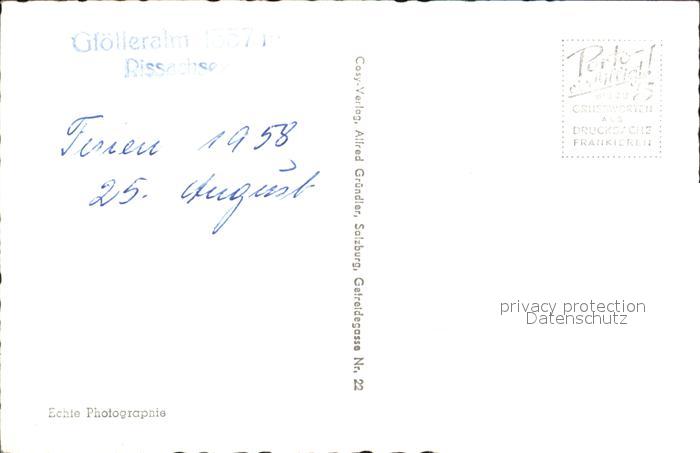 Gfölleralm 1337 m
Rissachsee
Ferien 1958
25. August
Cosy-Verlag, Alfred Gründler, Salzburg, Getreidegasse Nr. 22
Porto-
GRUSSWORTEN
ALS
DRUCKSACHE
FRANKIEREN
privacy protection
Datenschutz
Echte Photographie